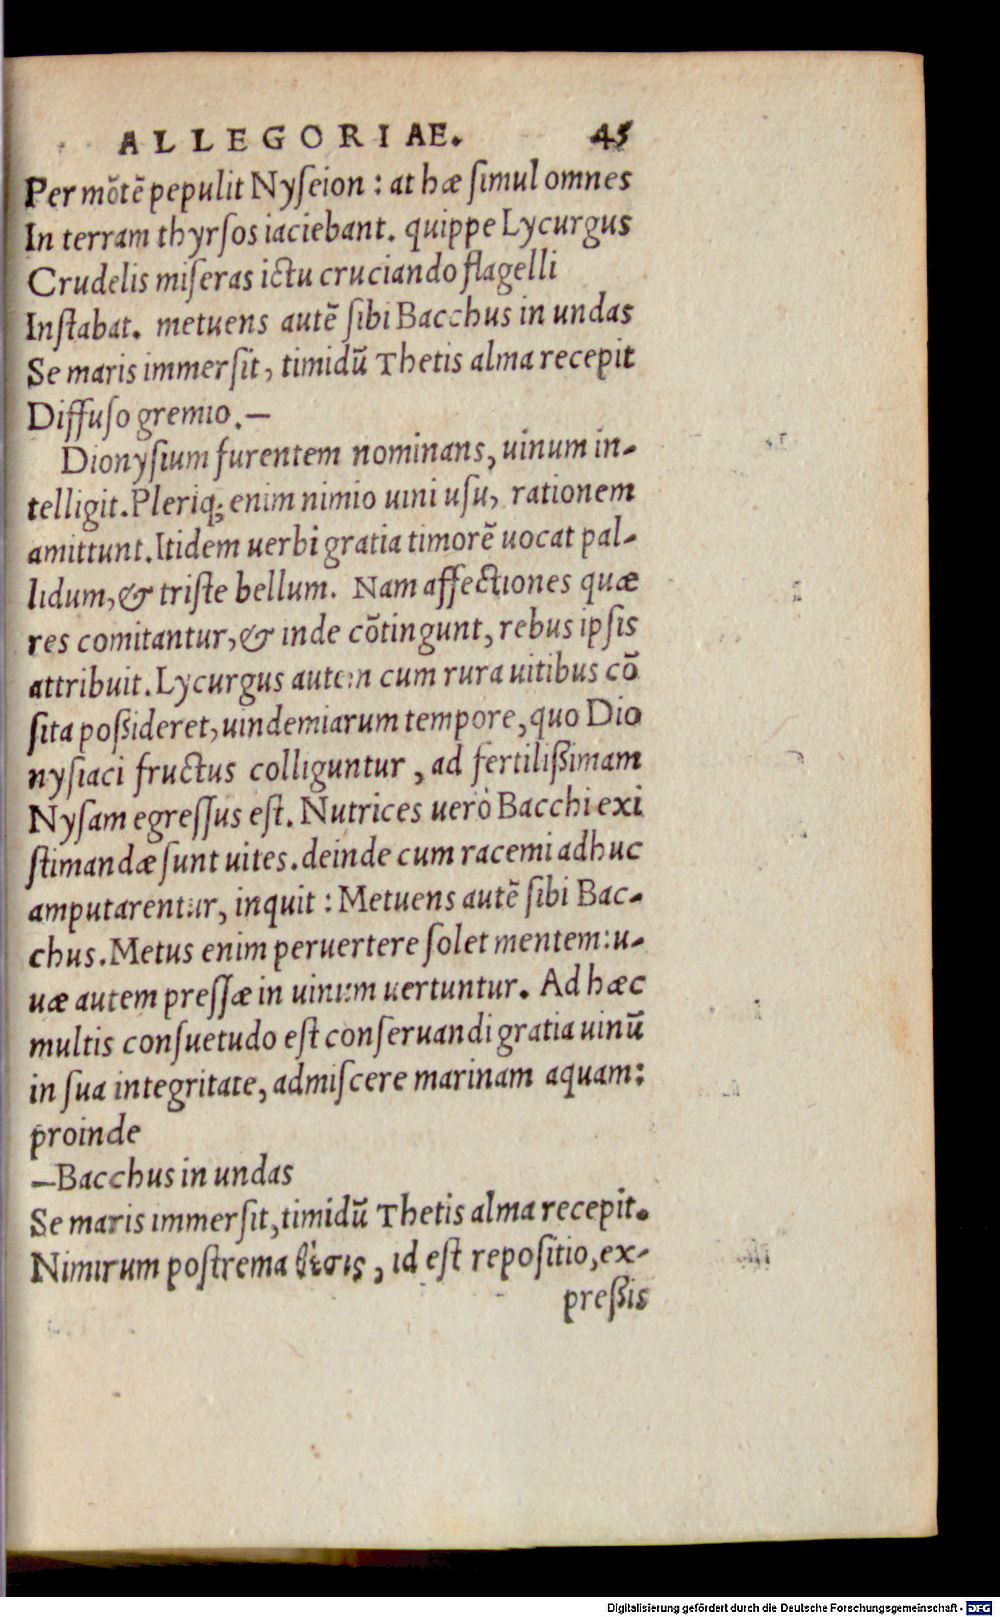 ALLEGORIAE. 45
Per mõtẽ pepulit Nyſeion : at hæ ſimul omnes
In terram thyrſos iaciebant. quippe Lycurgus
Crudelis miſeras ictu cruciando flagelli
Inſtabat. metuens autẽ ſibi Bacchus in undas
Se maris immerſit, timidũ Thetis alma recepit
Diffuſo gremio.—
Dionyſium furentem nominans, uinum in-
telligit. Pleriq; enim nimio uini uſu, rationem
amittunt. Itidem uerbi gratia timorẽ uocat pal-
lidum, & triſte bellum. Nam affectiones quæ
res comitantur, & inde cõtingunt, rebus ipſis
attribuit. Lycurgus autem cum rura uitibus cõ
ſita poßideret, uindemiarum tempore, quo Dio
nyſiaci fructus colliguntur , ad fertilißimam
Nyſam egreſſus eſt. Nutrices uerò Bacchi exi
ſtimandæ ſunt uites. deinde cum racemi adhuc
amputarentur, inquit : Metuens autẽ ſibi Bac-
chus. Metus enim peruertere ſolet mentem: u-
uæ autem preſſæ in uinum uertuntur. Ad hæc
multis conſuetudo eſt conſeruandi gratia uinũ
in ſua integritate, admiſcere marinam aquam:
proinde
—Bacchus in undas
Se maris immerſit, timidũ Thetis alma recepit.
Nimirum poſtrema θέσις , id eſt repoſitio, ex-
preßis
Digitalisierung gefördert durch die Deutsche Forschungsgemeinschaft - DFG